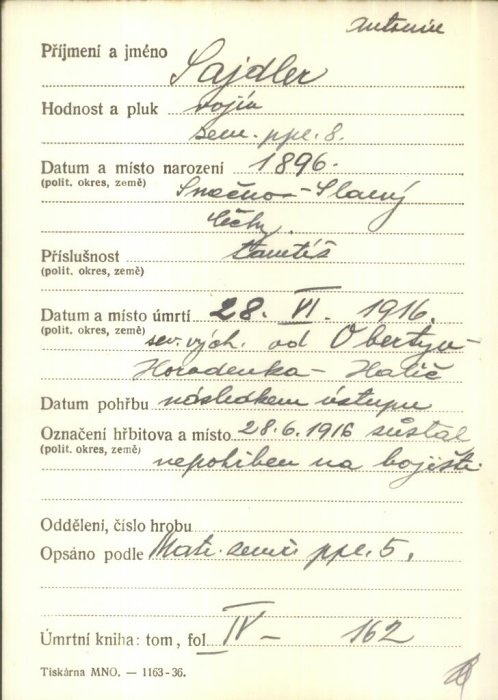 Antonín
Příjmení a jméno Sajdler
Hodnost a pluk vojín
zem. ppl. 8.
Datum a místo narození 1896.
(polit. okres, země) Smečno - Slaný
Čechy.
Příslušnost tamtéž
(polit. okres, země)
Datum a místo úmrtí 28. VI. 1916.
(polit. okres, země) sev. vých. od Obertyn-
Horodenka - Halič
Datum pohřbu následkem ústupu
Označení hřbitova a místo 28.6.1916 zůstal
(polit. okres, země) nepohřben na bojišti.
Oddělení, číslo hrobu
Opsáno podle Matr. zemř. ppl. 5.
Úmrtní kniha: tom, fol. IV - 162
Tiskárna MNO. — 1163-36.